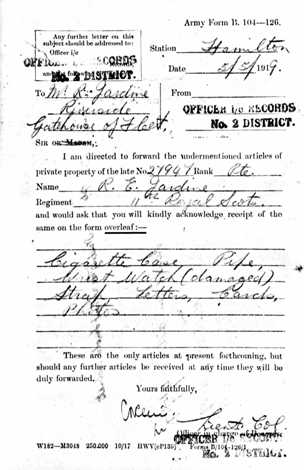 Army Form B. 104—126.
Any further letter on this
subject should be addressed to:—
Officer i/c
OFFICER I/C RECORDS
No. 2 DISTRICT.
Station Hamilton
Date 2/7/1919.
To Mr. R. Jardine
Riverside
Gatehouse of Fleet
From
OFFICER I/C RECORDS
No. 2 DISTRICT.
SIR OR MADAM,
I am directed to forward the undermentioned articles of
private property of the late No. 27941 Rank Pte.
Name R. E. Jardine
Regiment 11th Royal Scots
and would ask that you will kindly acknowledge receipt of the
same on the form overleaf:—
Cigarette Case, Pipe,
Wrist Watch (damaged)
Strap, Letters, Cards,
Photos
These are the only articles at present forthcoming, but
should any further articles be received at any time they will be
duly forwarded.
Yours faithfully,
Lieut. Col.
Officer in charge of Records.
OFFICER I/C RECORDS
No. 2 DISTRICT.
W162—M3048 250,000 10/17 HWV(P135) Forms B/104-126/1